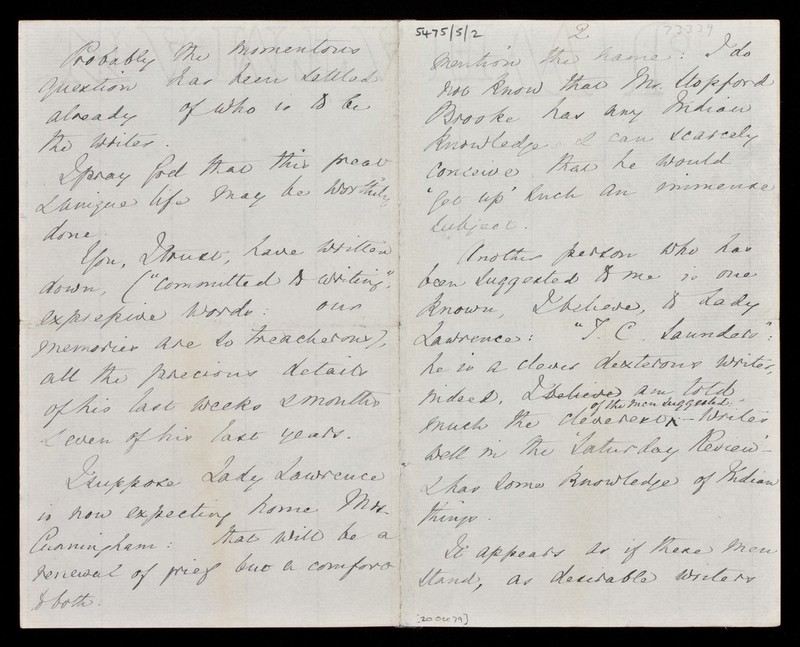 Probably the momentous
question has been settled
already of who is to be
the writer.
I pray God that this great
& unique life may be worthily
done.
You, I trust, have written
down, ("committed to writing",
expressive words: our
memories are so treacherous),
all the precious details
of his last weeks & months
& even of his last years.
I suppose Lady Lawrence
is now expecting home Mrs.
Cunningham: that will be a
renewal of grief but a comfort
to both.
5475/5/2
2
73339
mention the name: I do
not know that Mr. Stopford
Brooke has any Indian
knowledge. I can scarcely
conceive that he would
'get up' such an immense
subject.
Another person who has
been suggested to me is one
known, I believe, to Lady
Lawrence: "T. C. Saunders":
he is a clever dexterous writer,
indeed, I believe am told
of the men suggested:
much the cleverest - writes
well in the 'Saturday Review' -
& has some knowledge of Indian
things.
It appears as if these men
stand, as desirable writers
[20 Oct 79]